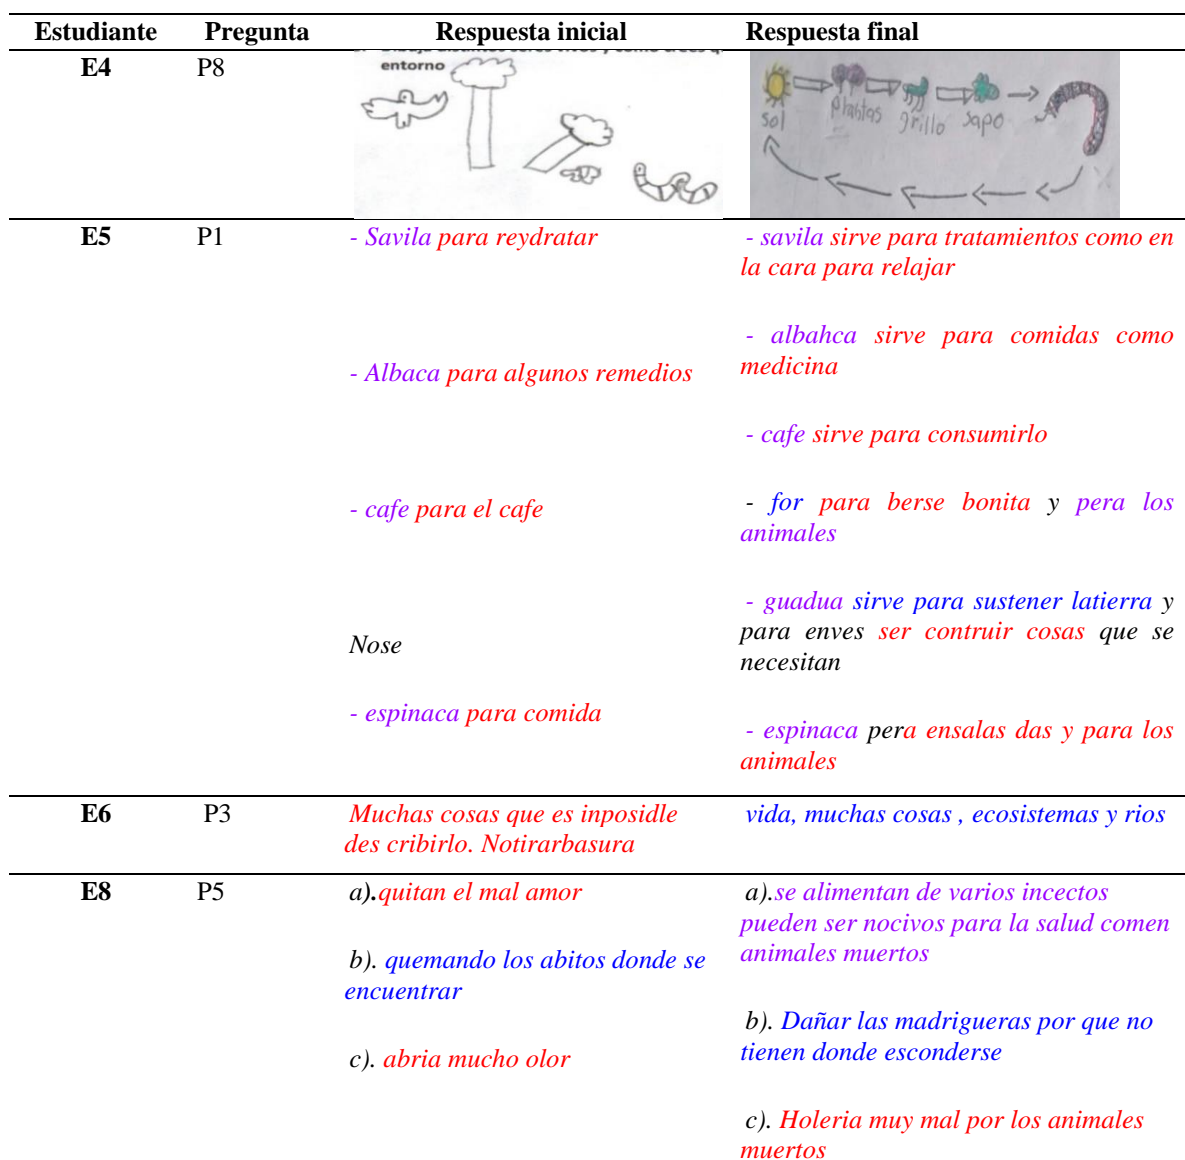 Estudiante Pregunta Respuesta inicial Respuesta final
E4 P8
entorno
sol
plantas
grillo
sapo
E5 P1
- Savila para reydratar
- Albaca para algunos remedios
- cafe para el cafe
Nose
- espinaca para comida
- savila sirve para tratamientos como en
la cara para relajar
- albahca sirve para comidas como
medicina
- cafe sirve para consumirlo
- for para berse bonita y pera los
animales
- guadua sirve para sustener latierra y
para enves ser contruir cosas que se
necesitan
- espinaca pera ensalas das y para los
animales
E6 P3
Muchas cosas que es inposidle
des cribirlo. Notirarbasura
vida, muchas cosas , ecosistemas y rios
E8 P5
a).quitan el mal amor
b). quemando los abitos donde se
encuentrar
c). abria mucho olor
a).se alimentan de varios incectos
pueden ser nocivos para la salud comen
animales muertos
b). Dañar las madrigueras por que no
tienen donde esconderse
c). Holeria muy mal por los animales
muertos